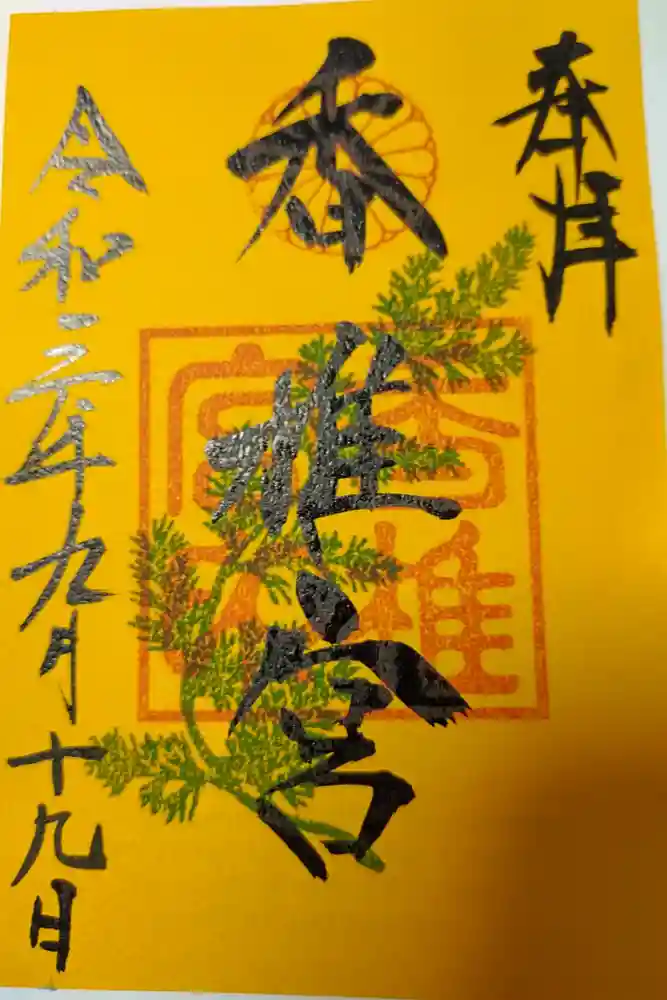 奉拝
香椎宮
令和二年九月十九日
香椎
宮